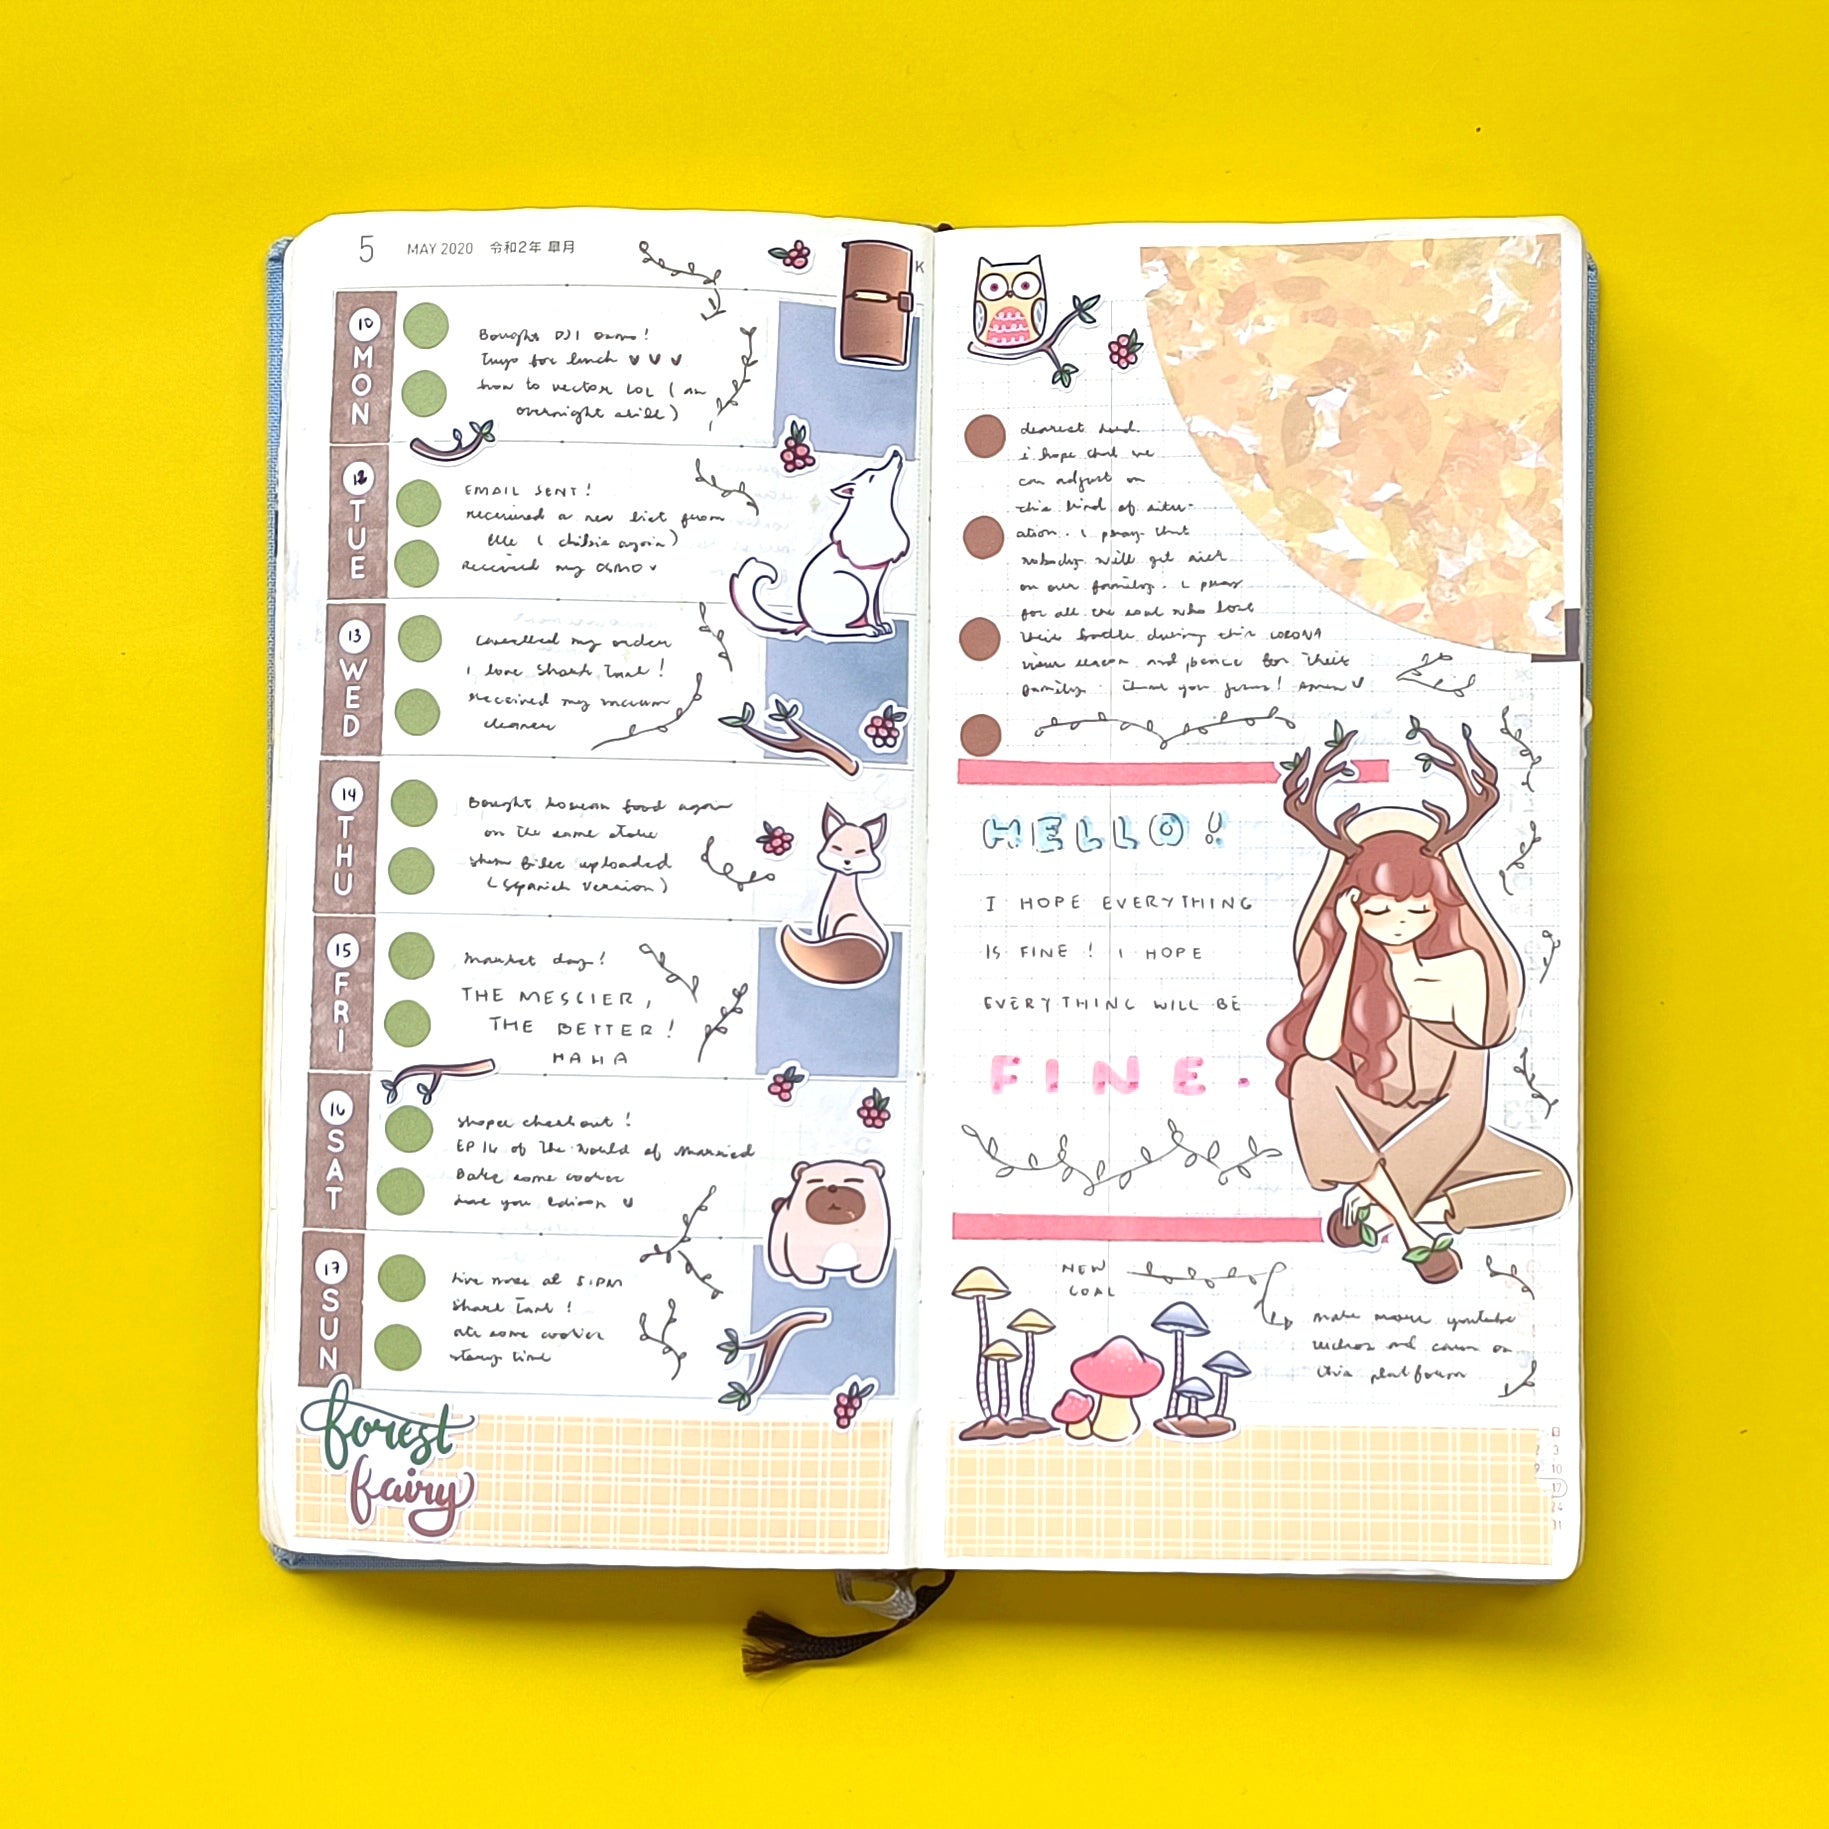 5 MAY 2020 令和2年 皐月
K
10 MON
Bought DJI Osmo!
for lunch
how to vector LOL (an
overnight
12 TUE
EMAIL SENT!
received a new from
again)
Received my OSMO
13 WED
Cancelled my order
I love Shark Tank!
Received my vacuum
cleaner
14 THU
Bought korean food again
on the same store
uploaded
(Spanish version)
15 FRI
Market day!
THE MESSIER,
THE BETTER!
HAHA
16 SAT
checkout!
EP 16 of The World of Married
Bake some cookies
love you
17 SUN
at 5:1PM
Shark Tank!
ate some cookies
story time
forest
fairy
dearest lord.
i hope that we
can adjust on
this kind of situ-
ation. I pray that
nobody will get sick
on our family. I pray
for all the soul who lost
their battle during this CORONA
virus season and peace for their
family. Thank you Jesus! Amen
HELLO!
I HOPE EVERYTHING
IS FINE! I HOPE
EVERYTHING WILL BE
FINE.
NEW
GOAL
make more youtube
videos and earn on
this platform
2 3
9 10
17
24
31